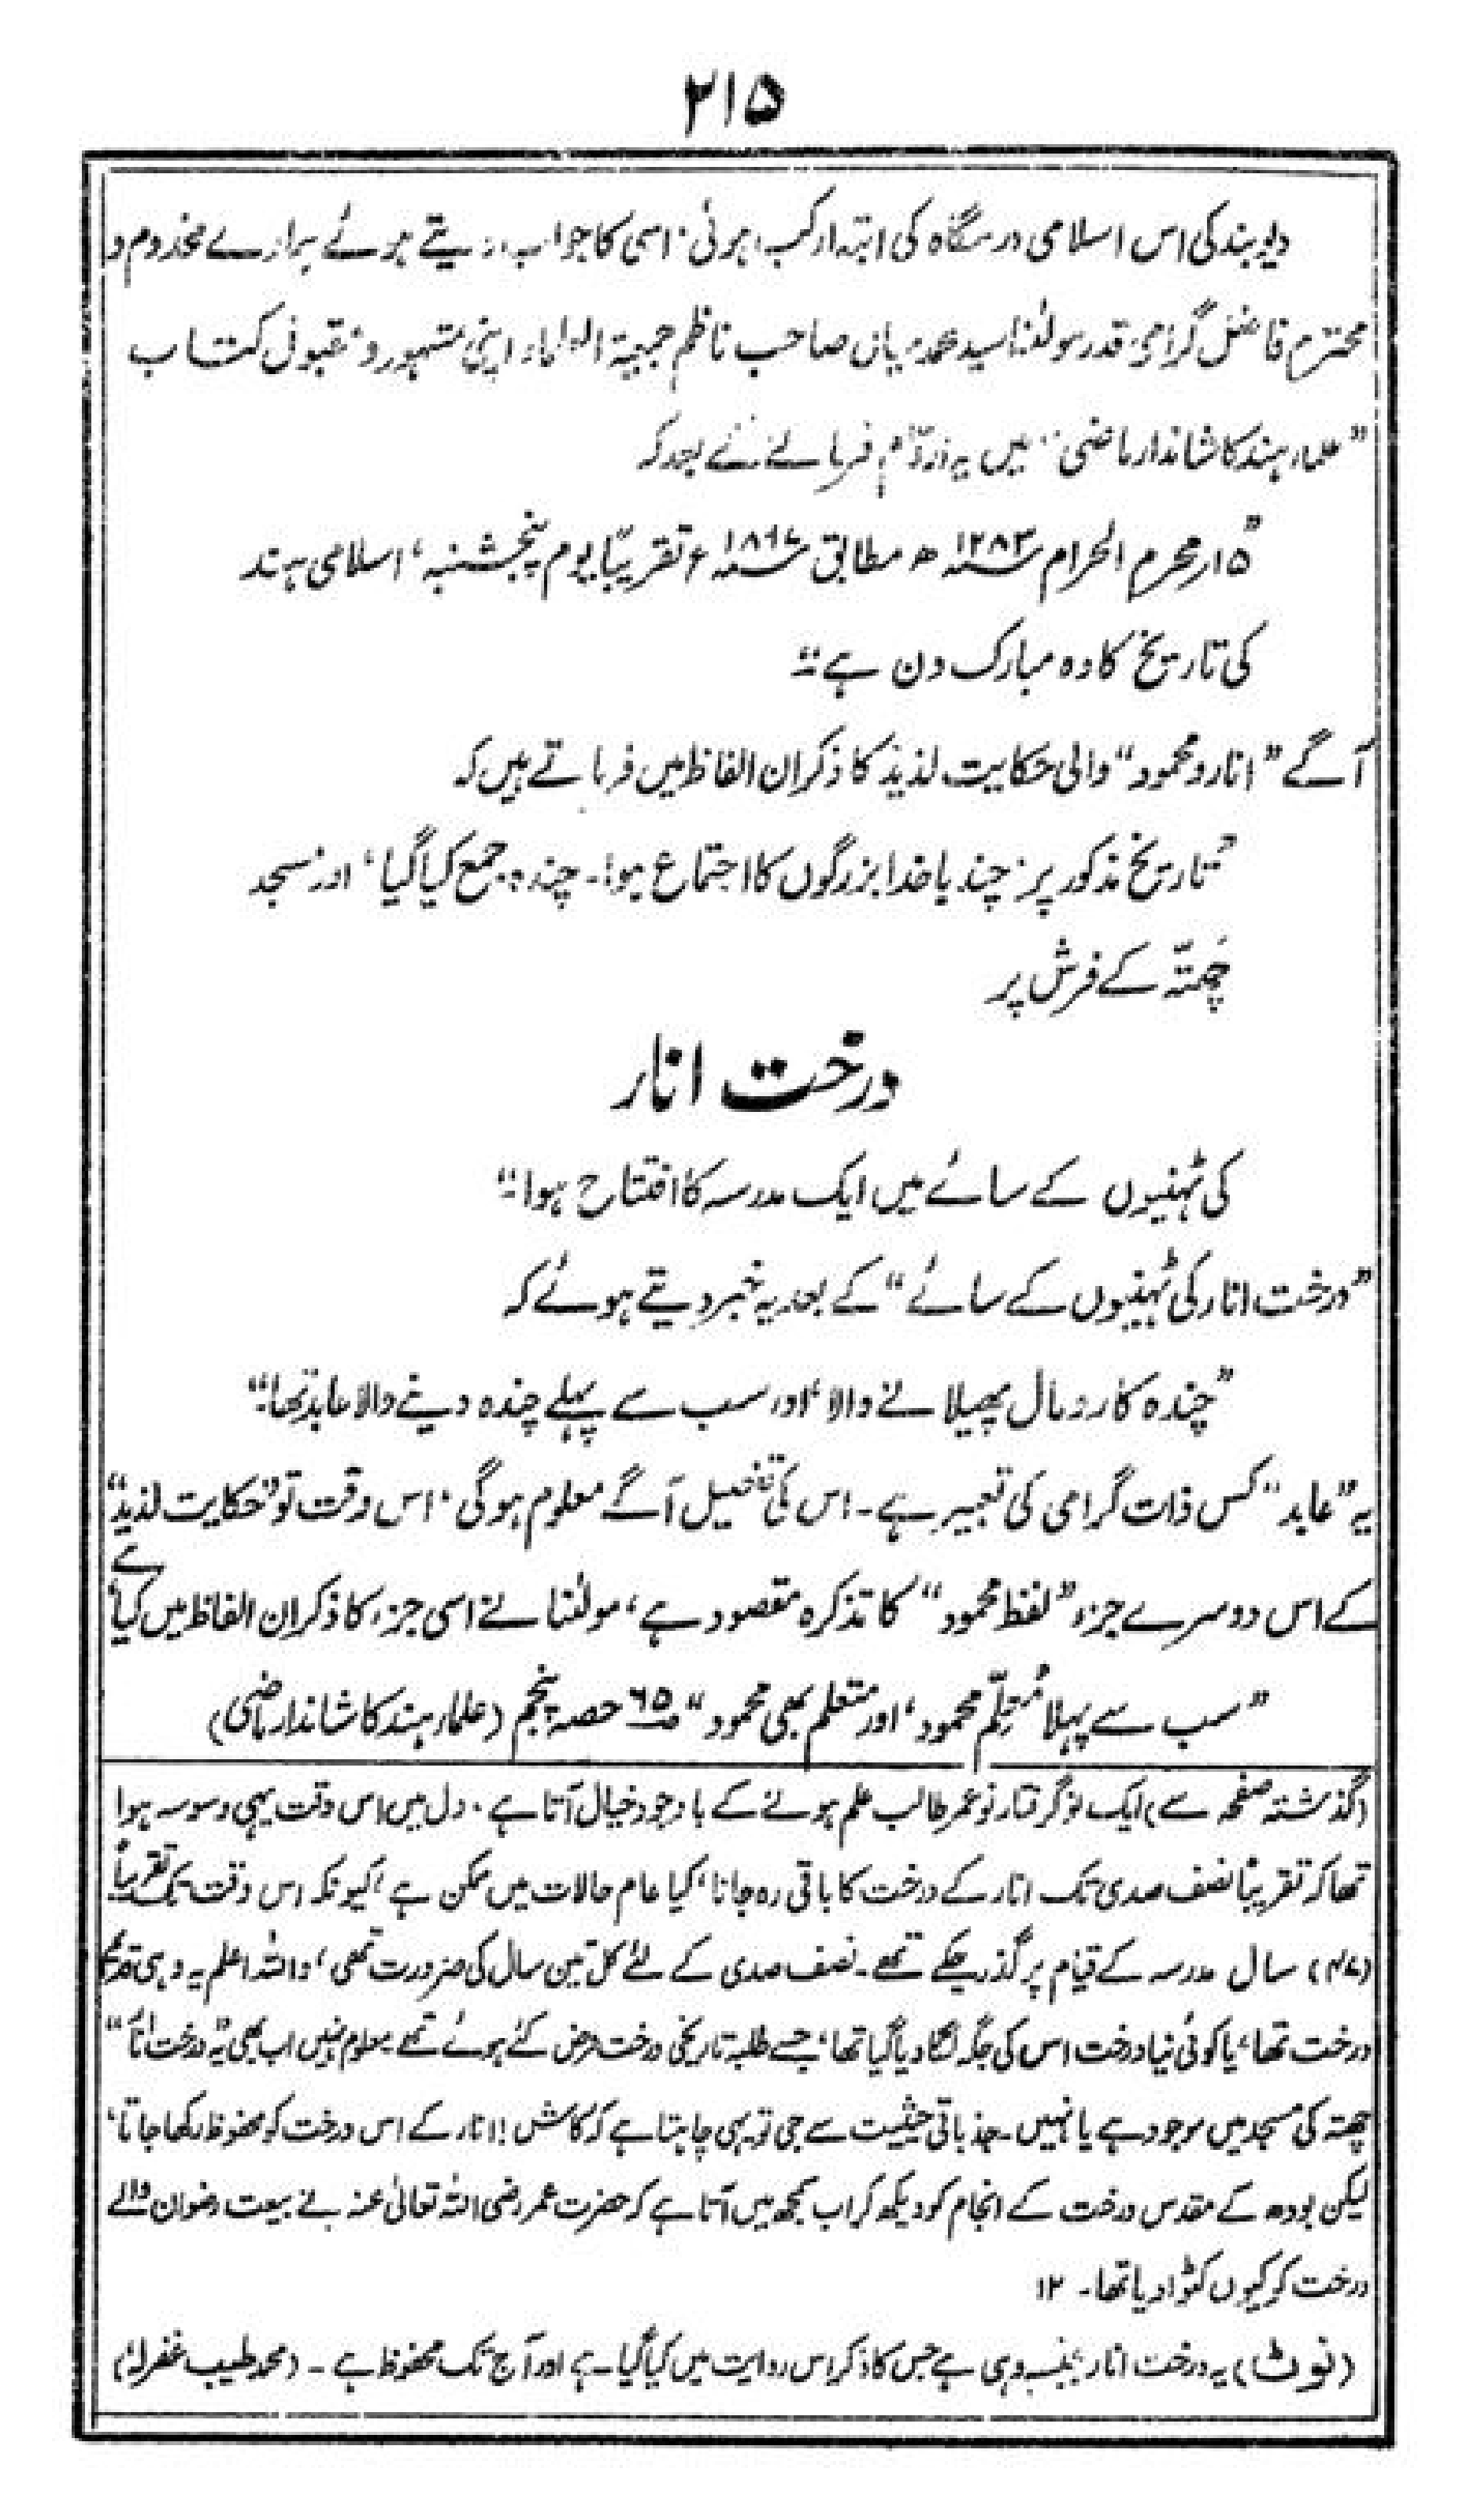 ۲۱۵
دیوبند کی اس اسلامی درسگاہ کی ابتدار کب ہوئی۔ اسی کا جواب دیتے ہوئے برادرے مخدوم و
محترم فاضل گرامی قدر مولٰنا سید محمد میاں صاحب ناظم جمیۃ العلماء اپنی مشہور و مقبول کتاب
”علماء ہند کا شاندار ماضی“ میں یہ فرمانے کے بعد کہ
”۱۵ محرم الحرام ۱۲۸۳ھ مطابق ۱۸۶۷ء تقریبًا یوم پنجشنبہ، اسلامی ہند
کی تاریخ کا وہ مبارک دن ہے“
آگے ”انار و محمود“ والی حکایت لذیذ کا ذکر ان الفاظ میں فرماتے ہیں کہ
”تاریخ مذکور پر چند باخدا بزرگوں کا اجتماع ہوا۔ چندہ جمع کیا گیا، اور مسجد
چَھتّہ کے فرش پر
درخت انار
کی ٹہنیوں کے سائے میں ایک مدرسہ کا افتتاح ہوا“
”درخت انار کی ٹہنیوں کے سائے“ کے بعد یہ خبر دیتے ہوئے کہ
”چندہ کا رومال پھیلانے والا، اور سب سے پہلے چندہ دینے والا عابد تھا“
یہ ”عابد“ کس ذات گرامی کی تعبیر ہے۔ اس کی تفصیل آگے معلوم ہوگی۔ اس وقت تو ”حکایت لذیذ“
کے اس دوسرے جزء ”لفظ محمود“ کا تذکرہ مقصود ہے، مولٰنا نے اسی جزء کا ذکر ان الفاظ میں کیا ہے
”سب سے پہلا مُعلّم محمود، اور متعلم بھی محمود“ ص۶۵ حصہ پنجم (علماء ہند کا شاندار ماضی)
(گذشتہ صفحہ سے) ایک نوگرفتار نوعمر طالب علم ہونے کے باوجود خیال آتا ہے۔ دل میں اس وقت یہی وسوسہ ہوا
تھا کہ تقریبًا نصف صدی تک انار کے درخت کا باقی رہ جانا، کیا عام حالات میں ممکن ہے، کیونکہ اس وقت تک تقریباً
(۴۷) سال مدرسہ کے قیام پر گذر چکے تھے۔ نصف صدی کے لئے کل تین سال کی ضرورت تھی، واللہ اعلم یہ وہی قدیم
درخت تھا، یا کوئی نیا درخت اس کی جگہ لگا دیا گیا تھا، جسے طلبہ تاریخی درخت فرض کئے ہوئے تھے معلوم نہیں اب بھی یہ ”درخت انار“
چھتہ کی مسجد میں موجود ہے یا نہیں۔ جذباتی حیثیت سے جی تو یہی چاہتا ہے کہ کاش! انار کے اس درخت کو محفوظ رکھا جاتا،
لیکن بودھ کے مقدس درخت کے انجام کو دیکھ کر اب سمجھ میں آتا ہے کہ حضرت عمر رضی اللہ تعالیٰ عنہ نے بیعت رضوان والے
درخت کو کیوں کٹوا دیا تھا۔ ۱۲
(نوٹ) یہ درخت انار بجنسہ وہی ہے جس کا ذکر اس روایت میں کیا گیا ہے اور آج تک محفوظ ہے۔ (محمد طیب غفرلہٗ)